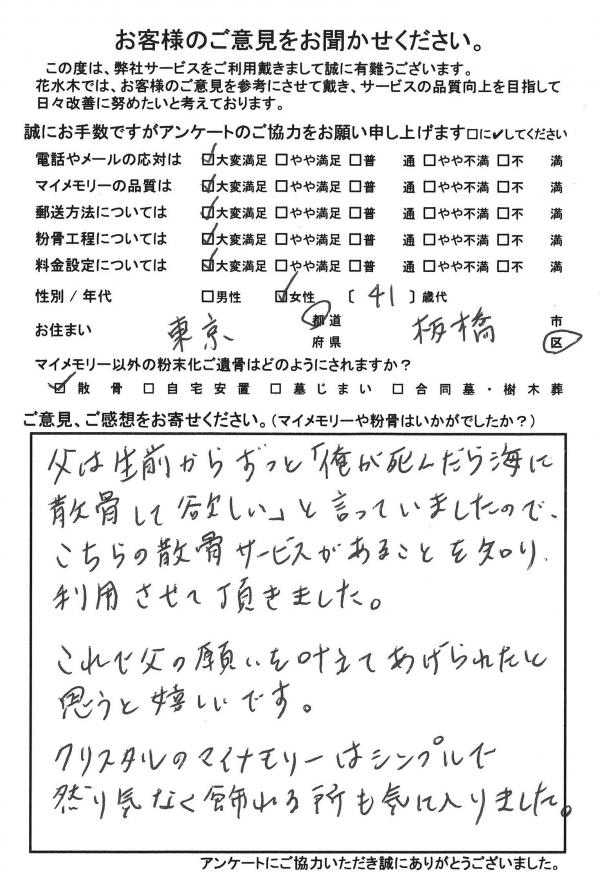 お客様のご意見をお聞かせください。
この度は、弊社サービスをご利用戴きまして誠に有難うございます。
花水木では、お客様のご意見を参考にさせて戴き、サービスの品質向上を目指して
日々改善に努めたいと考えております。
誠にお手数ですがアンケートのご協力をお願い申し上げます□に✔してください
電話やメールの応対は ☑大変満足 □やや満足 □普 通 □やや不満 □不 満
マイメモリーの品質は ☑大変満足 □やや満足 □普 通 □やや不満 □不 満
郵送方法については ☑大変満足 □やや満足 □普 通 □やや不満 □不 満
粉骨工程については ☑大変満足 □やや満足 □普 通 □やや不満 □不 満
料金設定については ☑大変満足 □やや満足 □普 通 □やや不満 □不 満
性別 / 年代 □男性 ☑女性 〔 41 〕歳代
お住まい 東京 都道府県 板橋 市区
マイメモリー以外の粉末化ご遺骨はどのようにされますか?
☑散骨 □自宅安置 □墓じまい □合同墓・樹木葬
ご意見、ご感想をお寄せください。(マイメモリーや粉骨はいかがでしたか?)
父は生前からずっと「俺が死んだら海に
散骨して欲しい」と言っていましたので、
こちらの散骨サービスがあることを知り、
利用させて頂きました。
これで父の願いを叶えてあげられたと
思うと嬉しいです。
クリスタルのマイメモリーはシンプルで
然り気なく飾れる所も気に入りました。
アンケートにご協力いただき誠にありがとうございました。